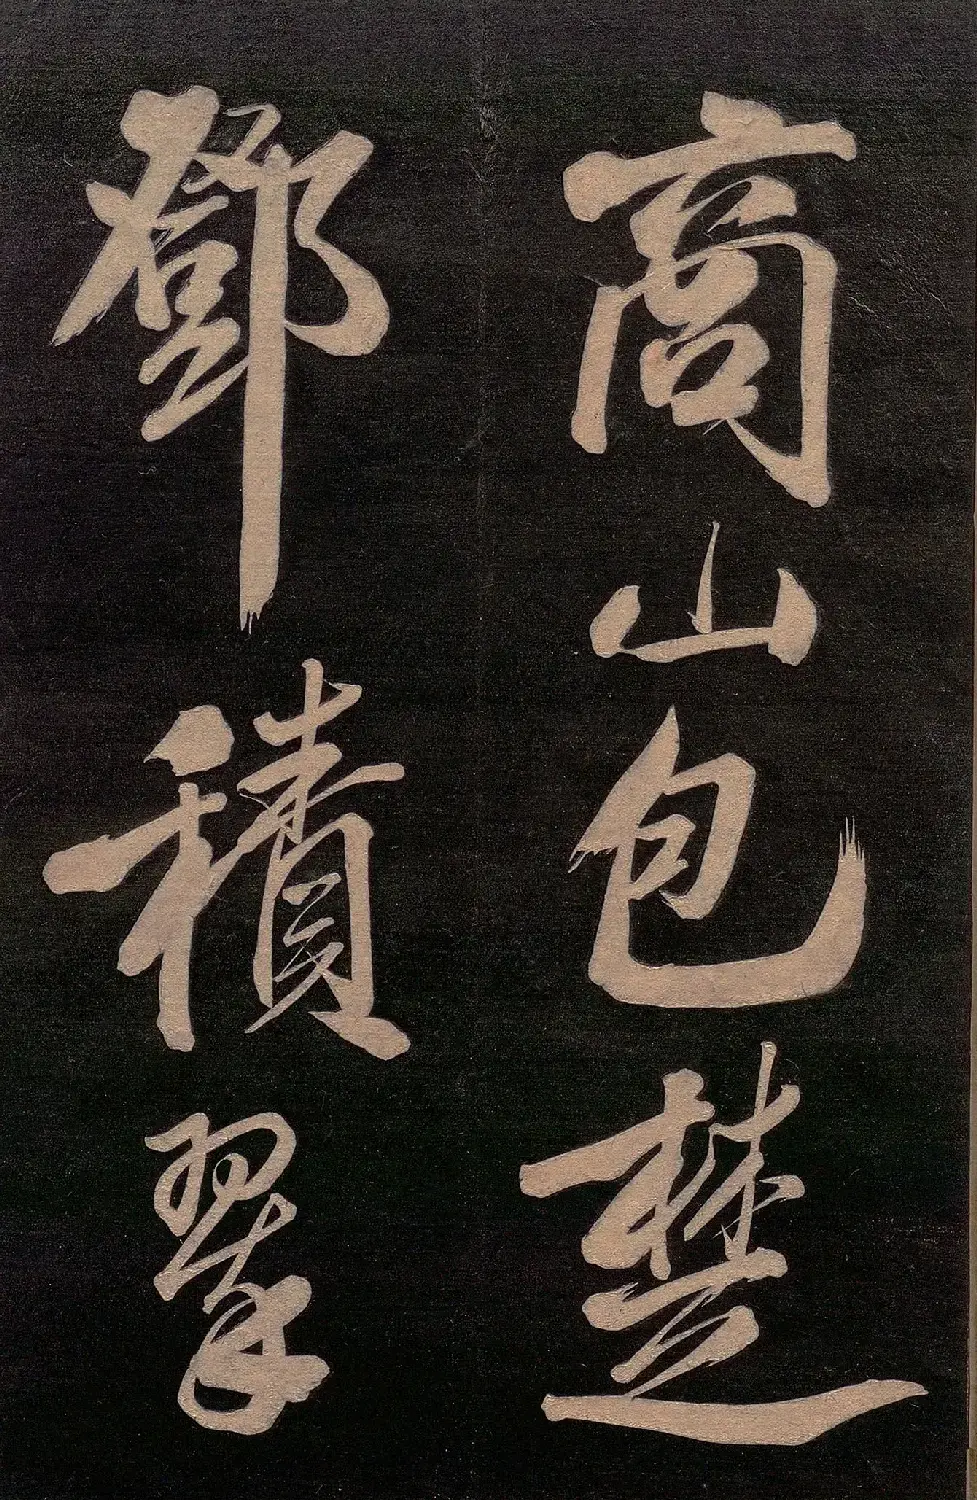 商山包楚
鄧積翠